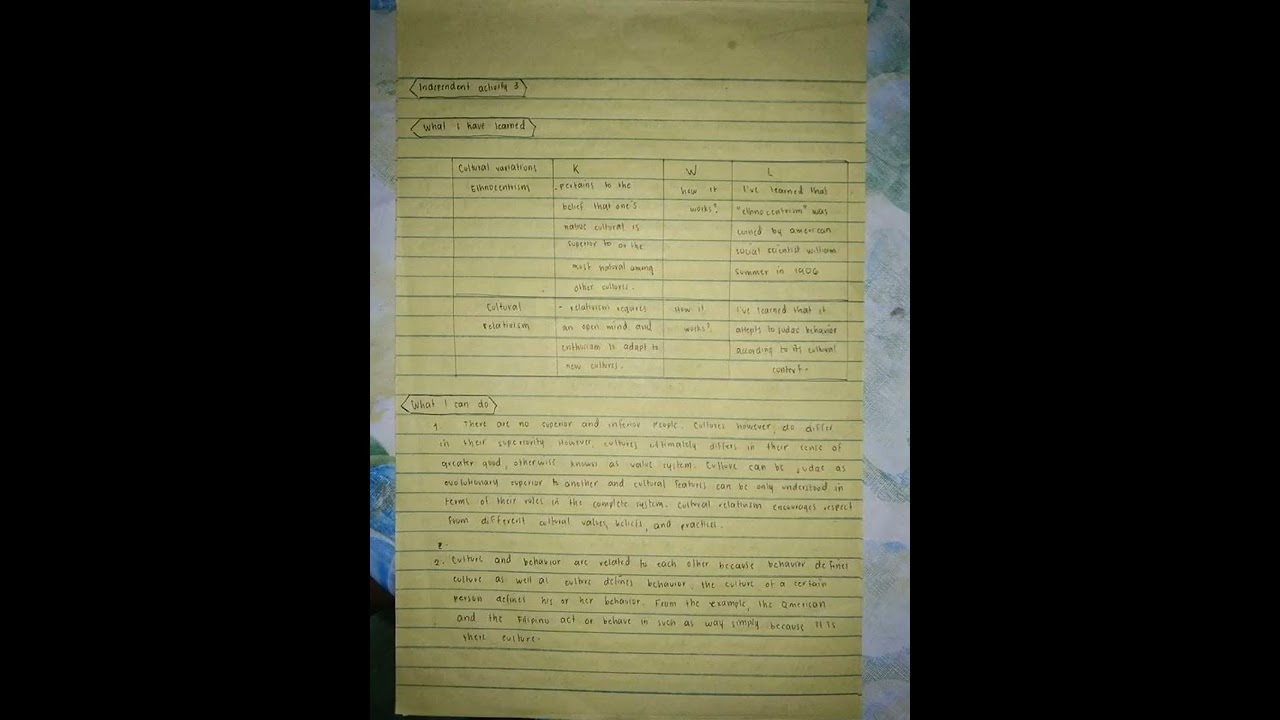 Independent activity 3
What I have learned
Cultural variations K W L
Ethnocentrism
. pertains to the
belief that one's
native cultural is
superior to or the
most natural among
other cultures.
how it
works?
I've learned that
"ethnocentrism" was
coined by american
social scientist william
summer in 1906
Cultural
relativism
- relativism requires
an open mind and
is adapt to
new cultures.
How it
works?
I've learned that it
attepts to judge behavior
according to its cultural
context.
What I can do
1 There are no superior and inferior people. Cultures however, do differ
in their superiority However, cultures ultimately differs in their sense of
greater good, otherwise known as value system. Culture can be judge as
evolutionary superior to another and cultural features can be only understood in
terms of their roles in the complete system. Cultural relativism encourages respect
from different cultural values, beliefs, and practices.
2. Culture and behavior are related to each other because behavior defines
culture as well as culture defines behavior, the culture of a certain
person defines his or her behavior. From the example, the American
and the Filipino act or behave in such as way simply because it is
there culture.